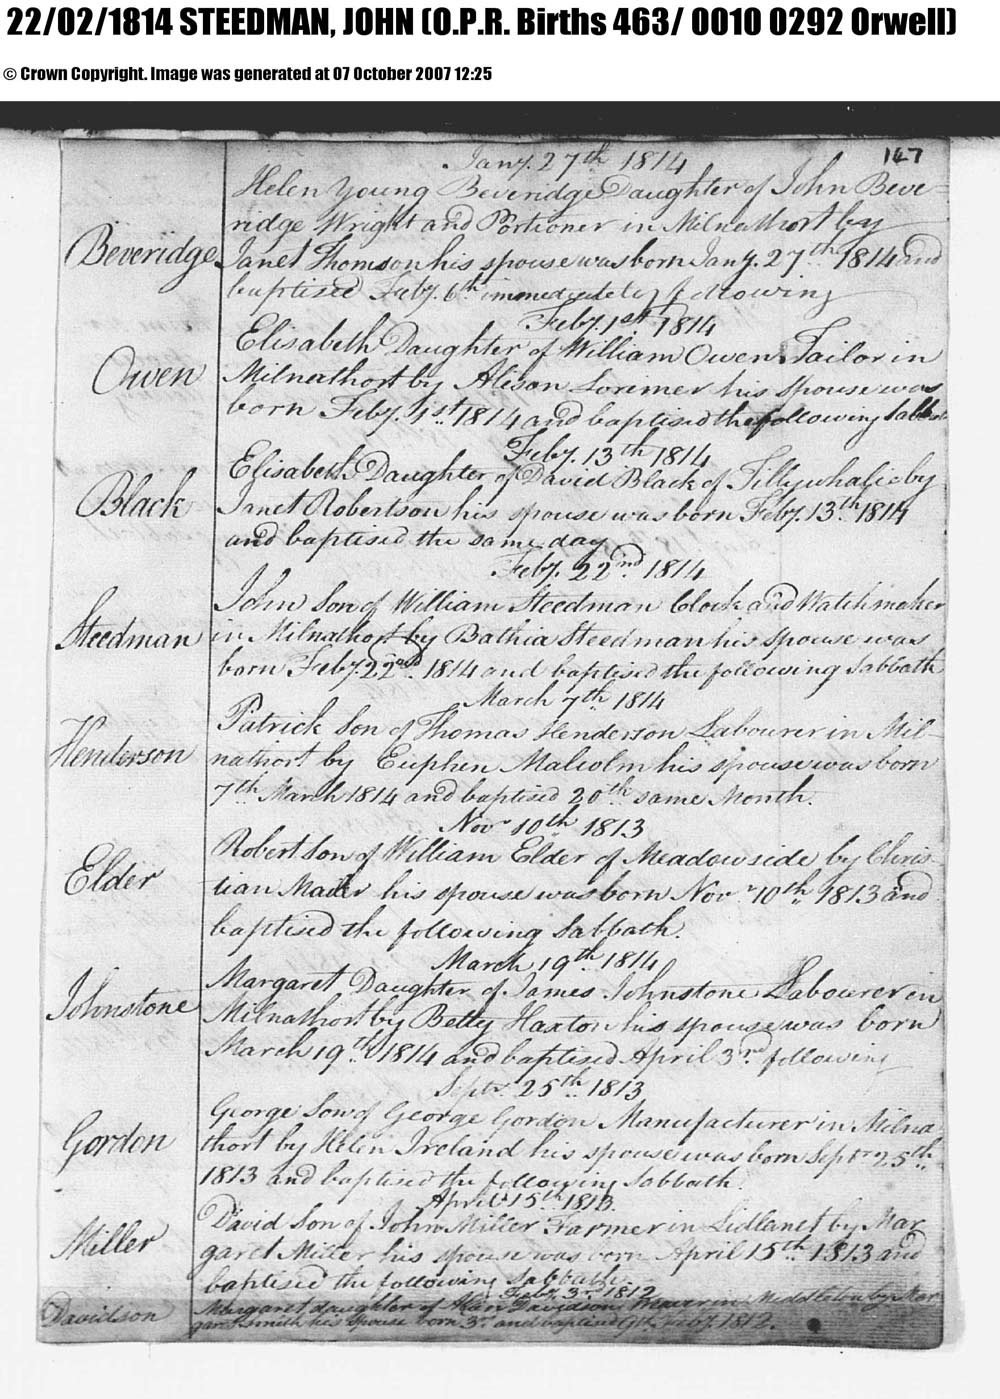 22/02/1814 STEEDMAN, JOHN (O.P.R. Births 463/ 0010 0292 Orwell)
© Crown Copyright. Image was generated at 07 October 2007 12:25
147
Jany. 27th 1814
Helen Young Beveridge Daughter of John Beve-
ridge Wright and Portioner in Milnathort by
Beveridge Janet Thomson his spouse was born Jany. 27th 1814 and
baptised Feby. 6th immediately following
Feby. 1st 1814
Elisabeth Daughter of William Owen Tailor in
Owen Milnathort by Alison Lorimer his spouse was
born Feby. 1st 1814 and baptised the following Sabbath
Feby. 13th 1814
Elisabeth Daughter of David Black of Tillywhalie by
Black Janet Robertson his spouse was born Feby. 13th 1814
and baptised the same day
Feby. 22nd 1814
John Son of William Steedman Clock and Watchmaker
Steedman in Milnathort by Bathia Steedman his spouse was
born Feby. 22nd 1814 and baptised the following Sabbath
March 7th 1814
Patrick Son of Thomas Henderson Labourer in Mil-
Henderson nathort by Euphen Malcolm his spouse was born
7th March 1814 and baptised 20th same Month.
Novr 10th 1813
Robert Son of William Elder of Meadowside by Chris-
Elder tian Mailer his spouse was born Novr 10th 1813 and
baptised the following Sabbath.
March 19th 1814
Margaret Daughter of James Johnstone Labourer in
Johnstone Milnathort by Betty Haxton his spouse was born
March 19th 1814 and baptised April 3rd following
Septr 25th 1813
George Son of George Gordon Manufacturer in Milna-
Gordon thort by Helen Ireland his spouse was born Septr 25th
1813 and baptised the following Sabbath.
April 15th 1813
David Son of John Miller Farmer in Lidlanet by Mar-
Miller garet Miller his spouse was born April 15th 1813 and
baptised the following Sabbath
Feby. 3rd 1812
Davidson Margaret daughter of Davidson Weaver in Middleton by Mar-
garet Smith his spouse born 3rd and baptised 9th Feby. 1812.